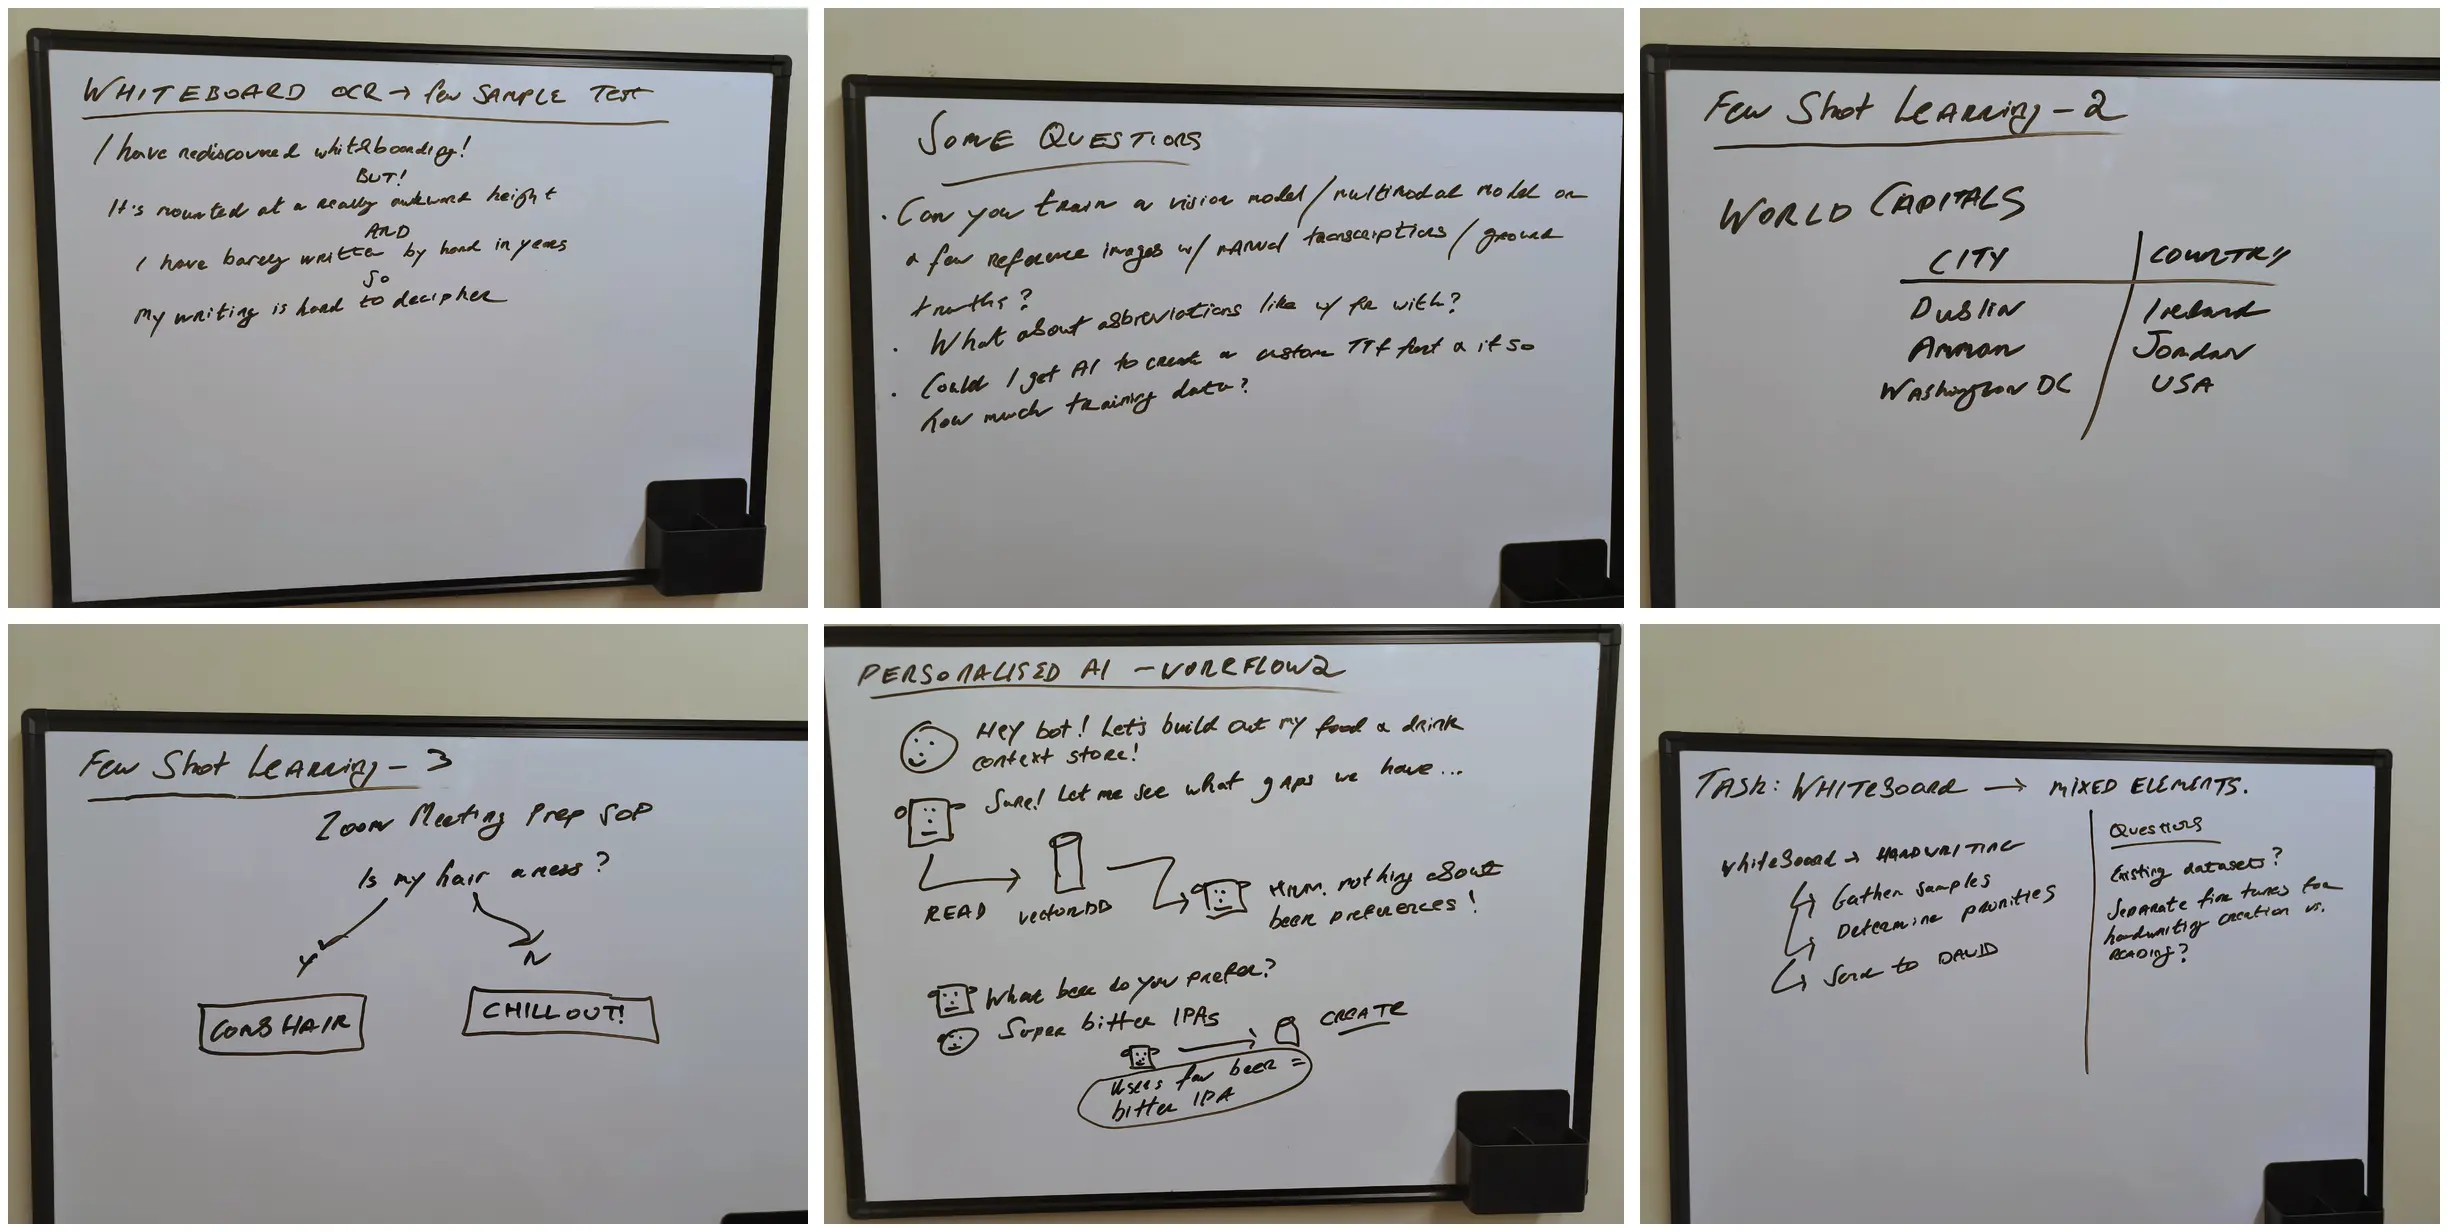 WHITEBOARD OCR → few SAMPLE TEST
I have rediscovered whiteboarding!
BUT!
It's mounted at a really awkward height
AND
I have barely written by hand in years
SO
My writing is hard to decipher
SOME QUESTIONS
· Can you train a vision model/multimodal model on
a few reference images w/ manual transcriptions/ground
truths?
· What about abbreviations like w/ for with?
· Could I get AI to create a custom TTF font & if so
how much training data?
Few Shot Learning - 2
WORLD CAPITALS
CITY COUNTRY
Dublin Ireland
Amman Jordan
Washington DC USA
Few Shot Learning - 3
Zoom Meeting Prep SOP
Is my hair a mess?
Y N
COMB HAIR CHILL OUT!
PERSONALISED AI - WORKFLOW 2
Hey bot! Let's build out my food & drink
context store!
Sure! Let me see what gaps we have...
READ vectorDB
Hmm. nothing about
beer preferences!
What beer do you prefer?
Super bitter IPAs
CREATE
Users fav beer =
bitter IPA
TASK: WHITEBOARD → MIXED ELEMENTS.
Whiteboard → HANDWRITING
↳ Gather samples
↳ Determine priorities
↳ Send to DAVID
Questions
Existing datasets?
Separate fine tunes for
handwriting creation vs.
reading?